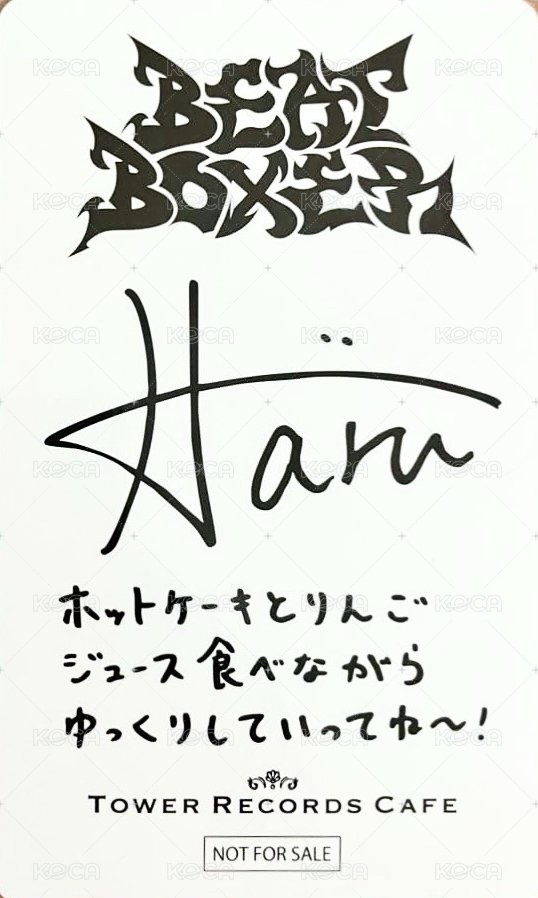 BEAT
BOXER
Haru
ホットケーキとりんご
ジュース食べながら
ゆっくりしていってね〜!
TOWER RECORDS CAFE
NOT FOR SALE
KOCA